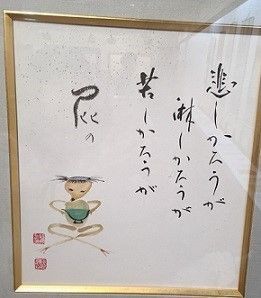 悲しかろうが
淋しかろうが
苦しかろうが
屁の